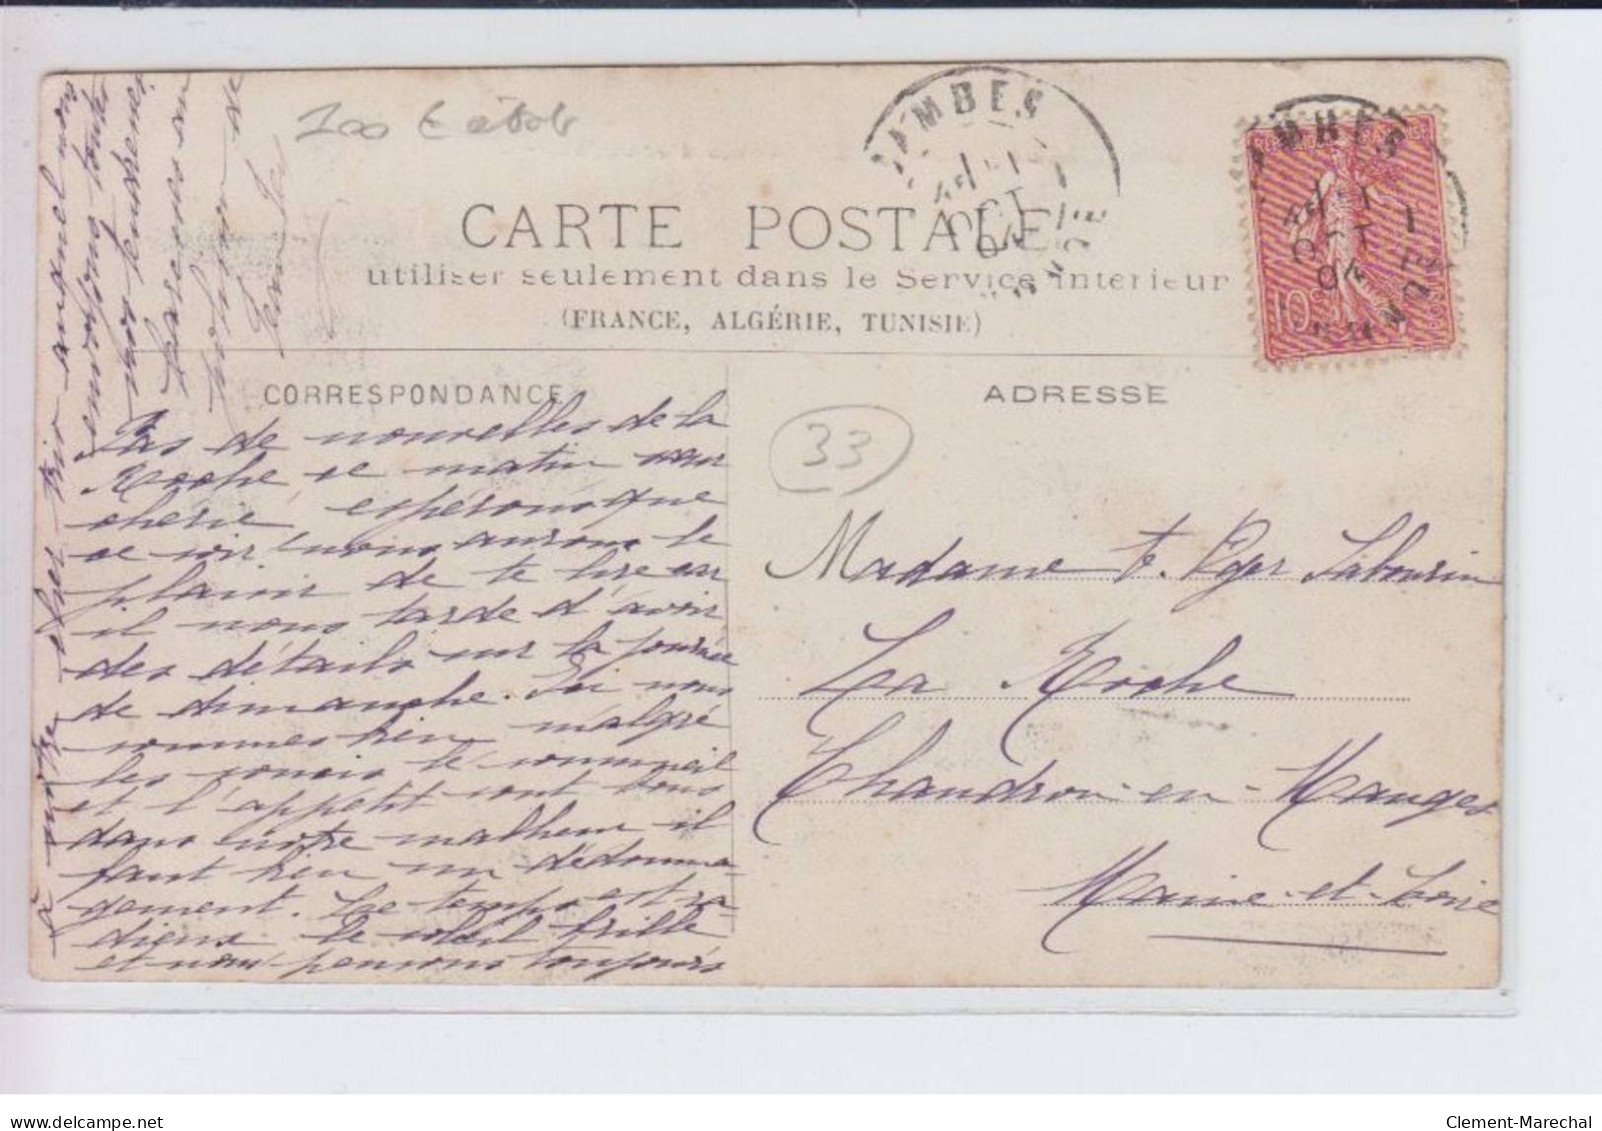 CARTE POSTALE
utiliser seulement dans le Service intérieur
(FRANCE, ALGÉRIE, TUNISIE)
AMBÈS
OCT
04
GIRONDE
10c
CORRESPONDANCE
ADRESSE
33
Pas de nouvelles de la
Roche ce matin ma
chérie, espérons que
ce soir nous aurons le
plaisir de te lire car
il nous tarde d'avoir
des détails sur la journée
de dimanche. Ici nous
sommes bien malgré
les soucis le sommeil
et l'appétit sont bons
dans notre malheur il
faut bien un dédomma-
gement. Le temps est ra-
dieux le soleil brille
et nous pensons toujours
à notre cher trio auquel nous
Madame Roger Sabourin
La Roche
Chaudron-en-Mauges
Maine-et-Loire
Clement-Marechal
delcampe.net